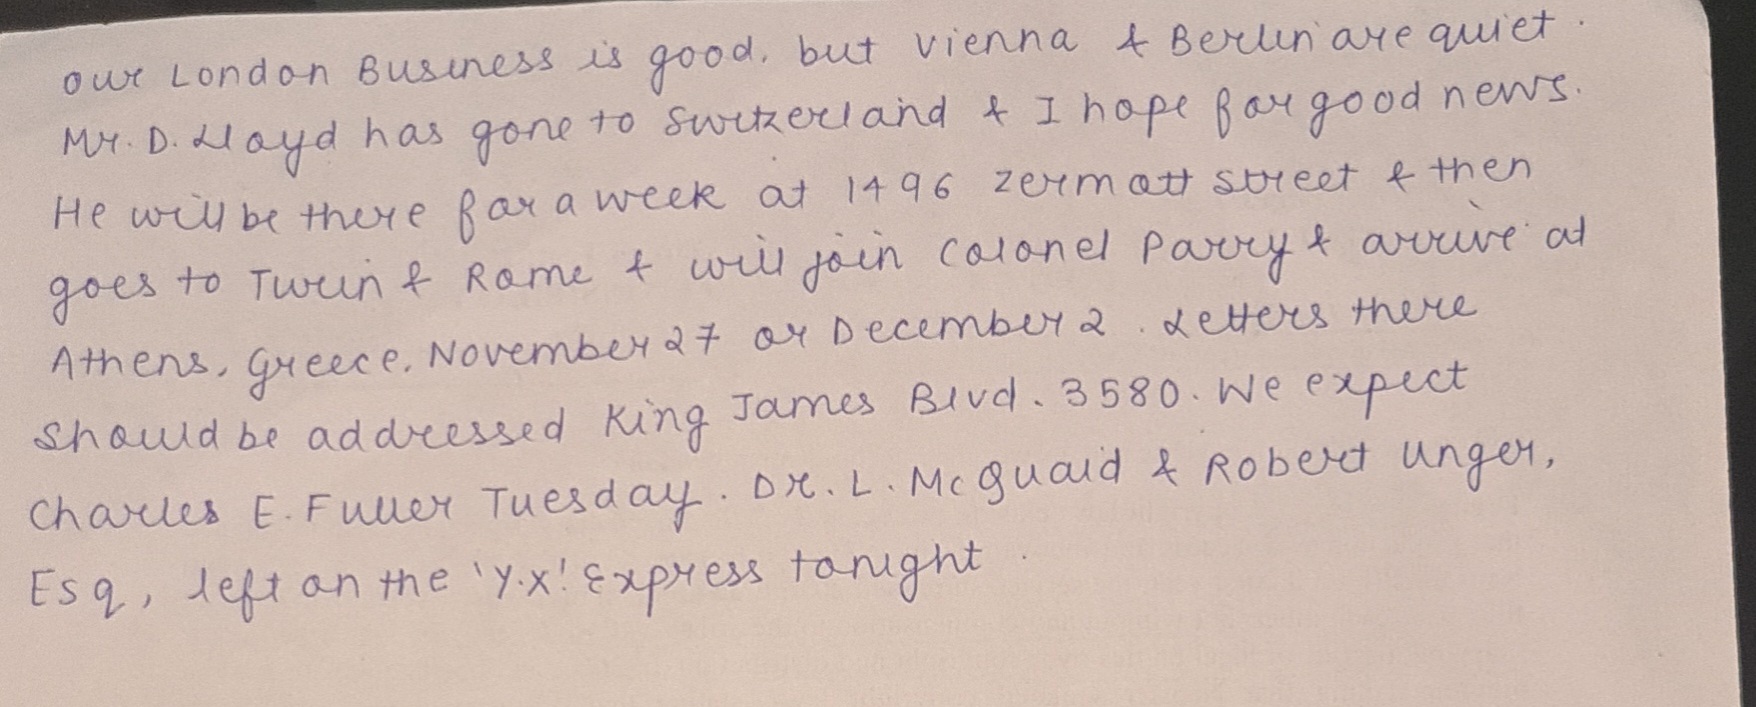 our London Business is good, but Vienna & Berlin are quiet.
Mr. D. Lloyd has gone to Switzerland & I hope for good news.
He will be there for a week at 1496 Zermott street & then
goes to Turin & Rome & will join Colonel Parry & arrive at
Athens, Greece, November 27 or December 2. Letters there
should be addressed King James Blvd. 3580. We expect
Charles E. Fuller Tuesday. Dr. L. McQuaid & Robert Unger,
Esq, left on the 'Y.X.' Express tonight.